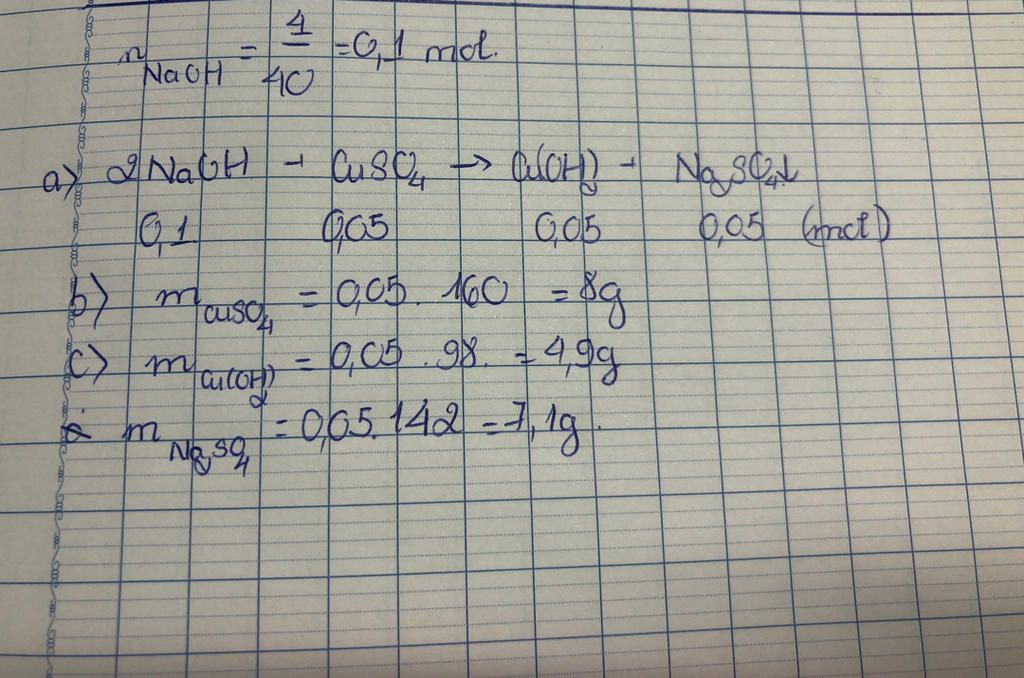 n NaOH = 4/40 = 0,1 mol.
a) 2NaOH + CuSO4 → Cu(OH)2 + Na2SO4↓
0,1 0,05 0,05 0,05 (mol)
b) m CuSO4 = 0,05. 160 = 8g
c) m Cu(OH)2 = 0,05 .98. = 4,9g
m Na2SO4 = 0,05.142 = 7,1g.